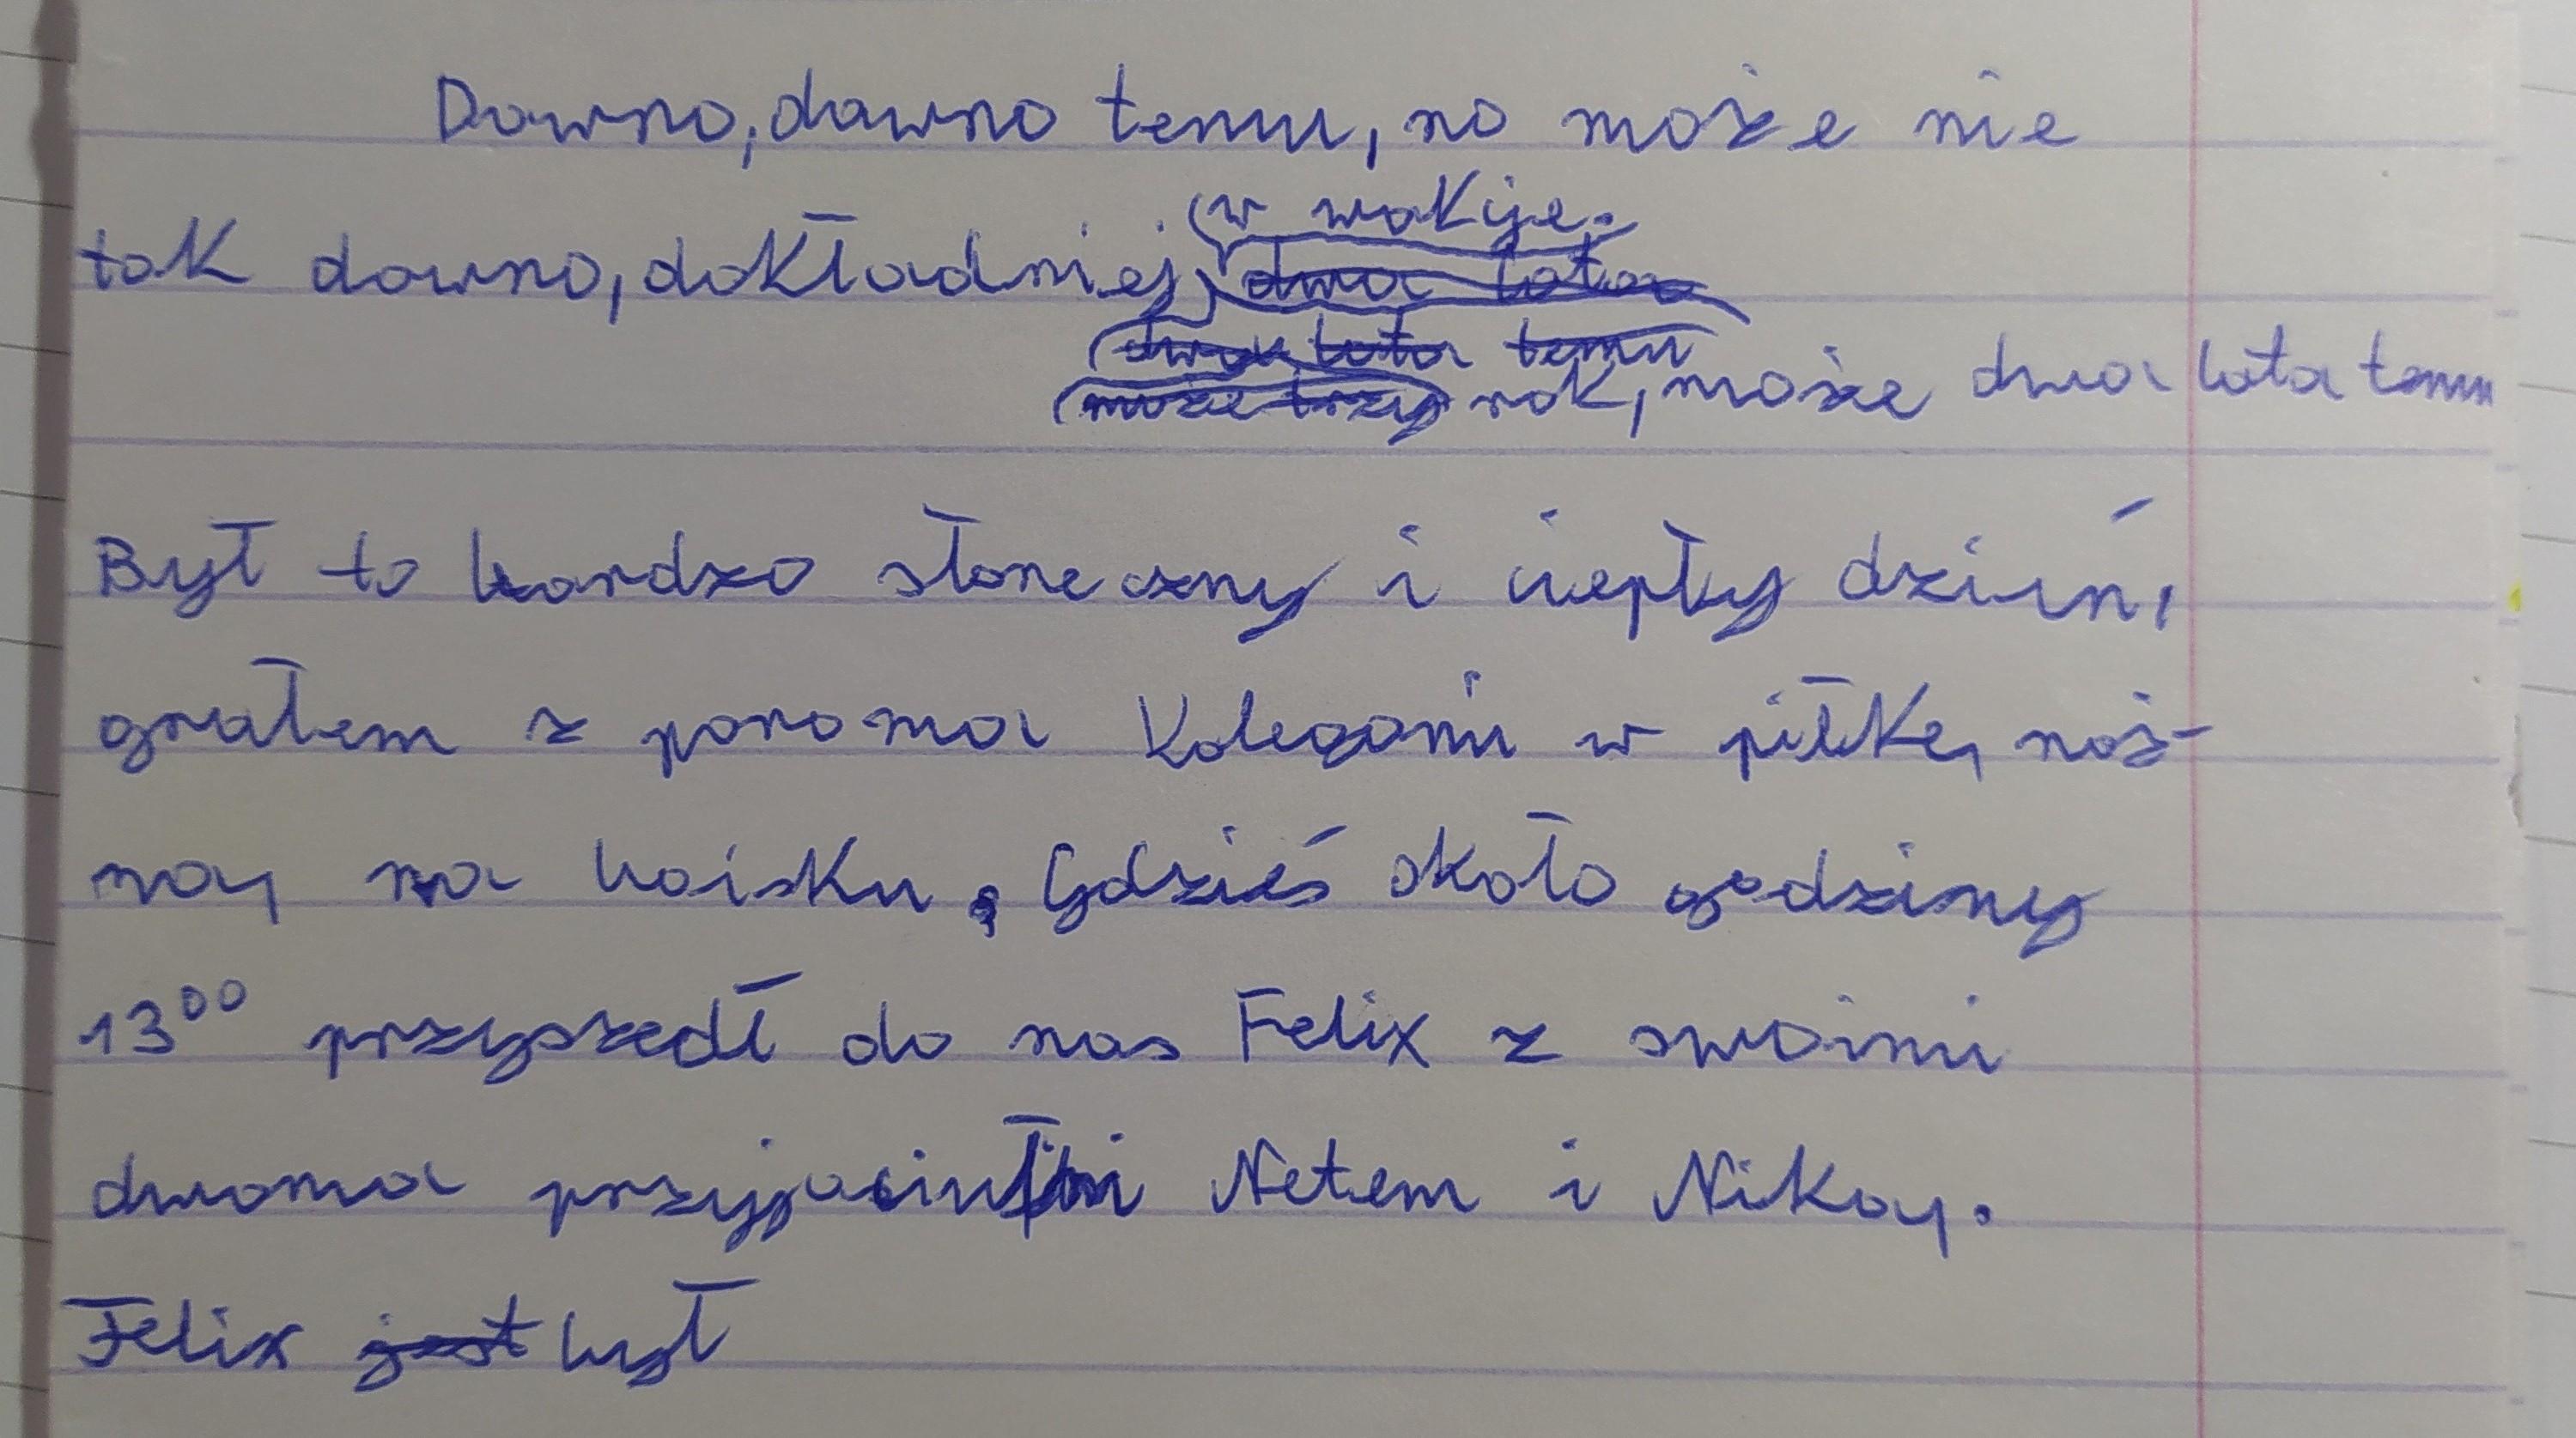 Dawno, dawno temu, no może nie
w wakije.
tak dawno, dokładniej dwa lata
dwa lata temu
może trzy rok, może dwa lata temu
Był to bardzo słoneczny i ciepły dzień,
grałem z paroma kolegami w piłkę noż-
ną na boisku. Gdzieś około godziny
13⁰⁰ przyszedł do nas Felix z swoimi
dwoma Netem i Niką.
Felix jest był